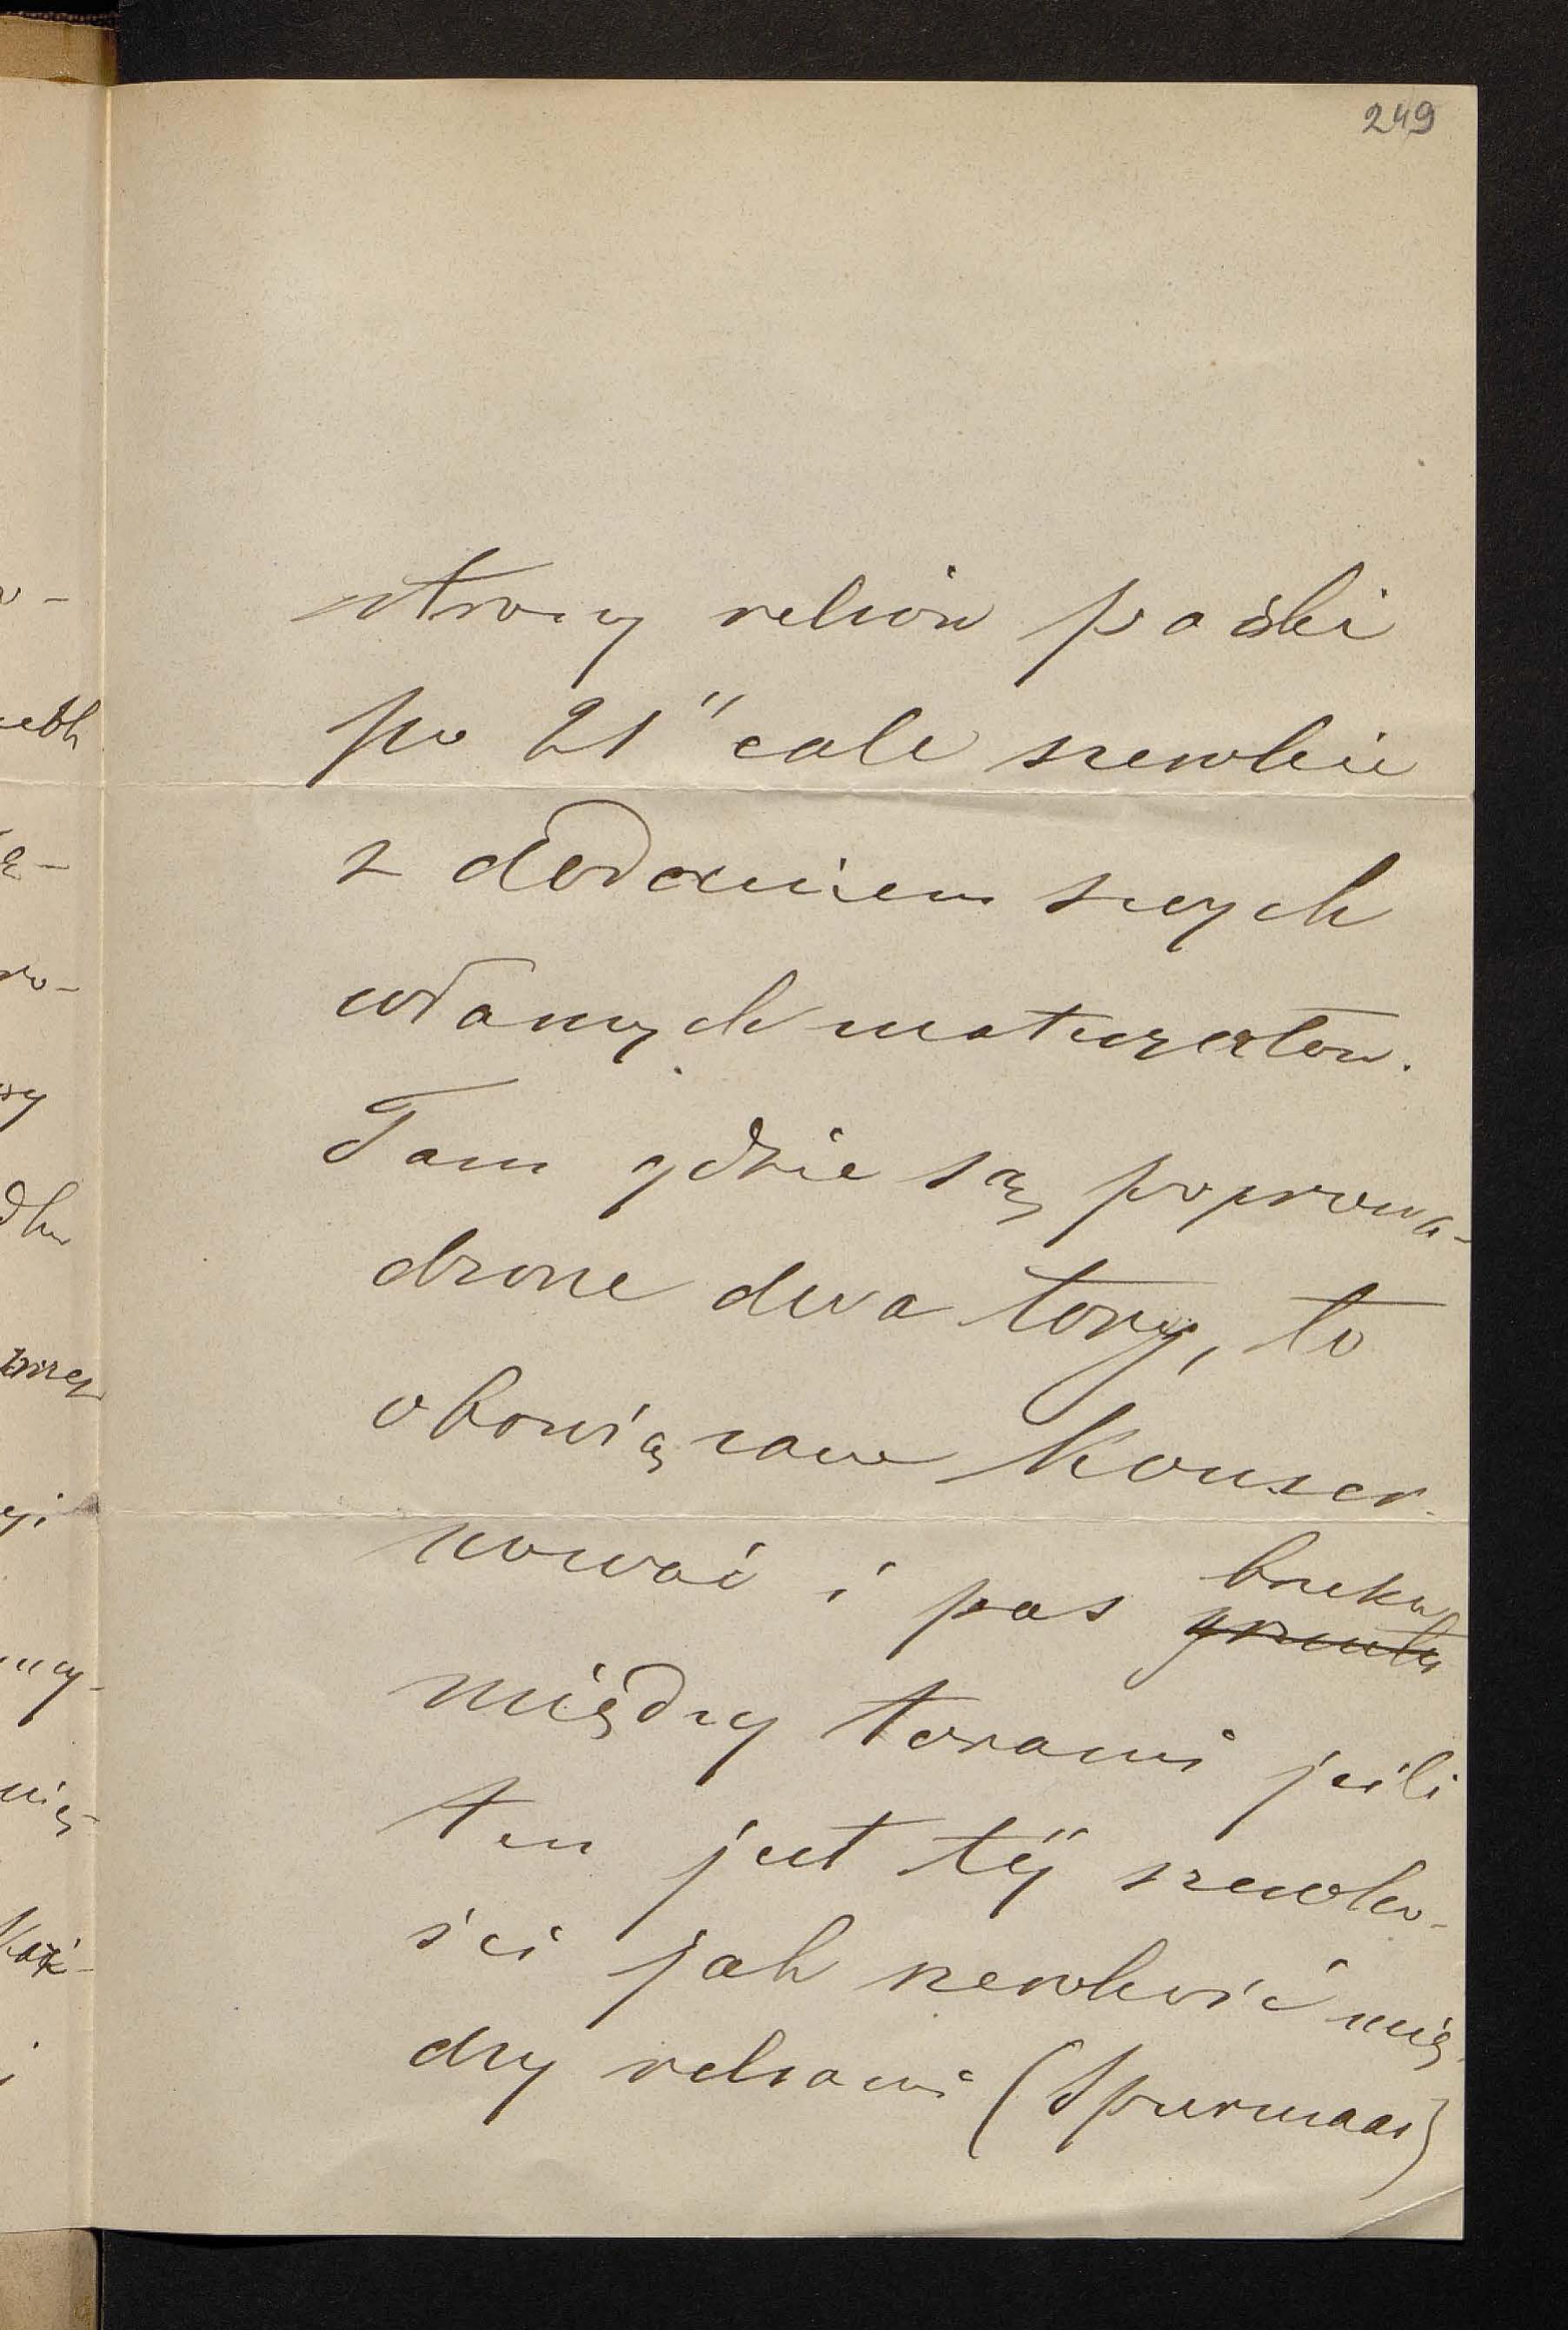 249
strony relsów paski
po 21" cale szerokie
z dodaniem swych
własnych materyałów.
Tam gdzie są poprowa-
dzone dwa tory, to
obowiązane konser-
wować i pas gruntu bruku
między torami jeśli
ten jest téj szeroko-
ści jak szerokość mię-
dzy relsami (Spurmaas)